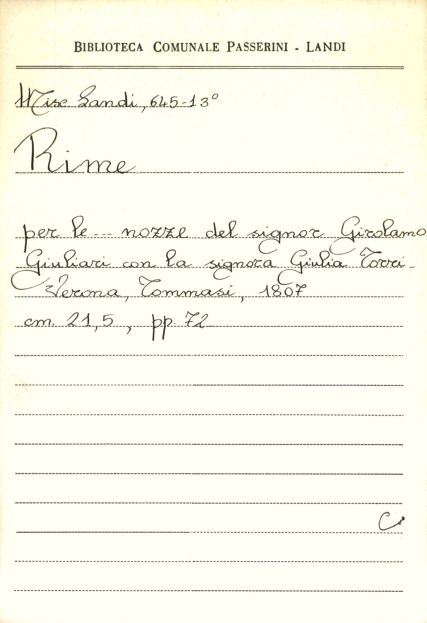 BIBLIOTECA COMUNALE PASSERINI - LANDI
Misc. Landi, 645-13°
Rime
per le --- nozze del signor Girolamo
Giuliari con la signora Giulia Torri -
Verona, Tommasi, 1807
cm. 21,5, pp 72